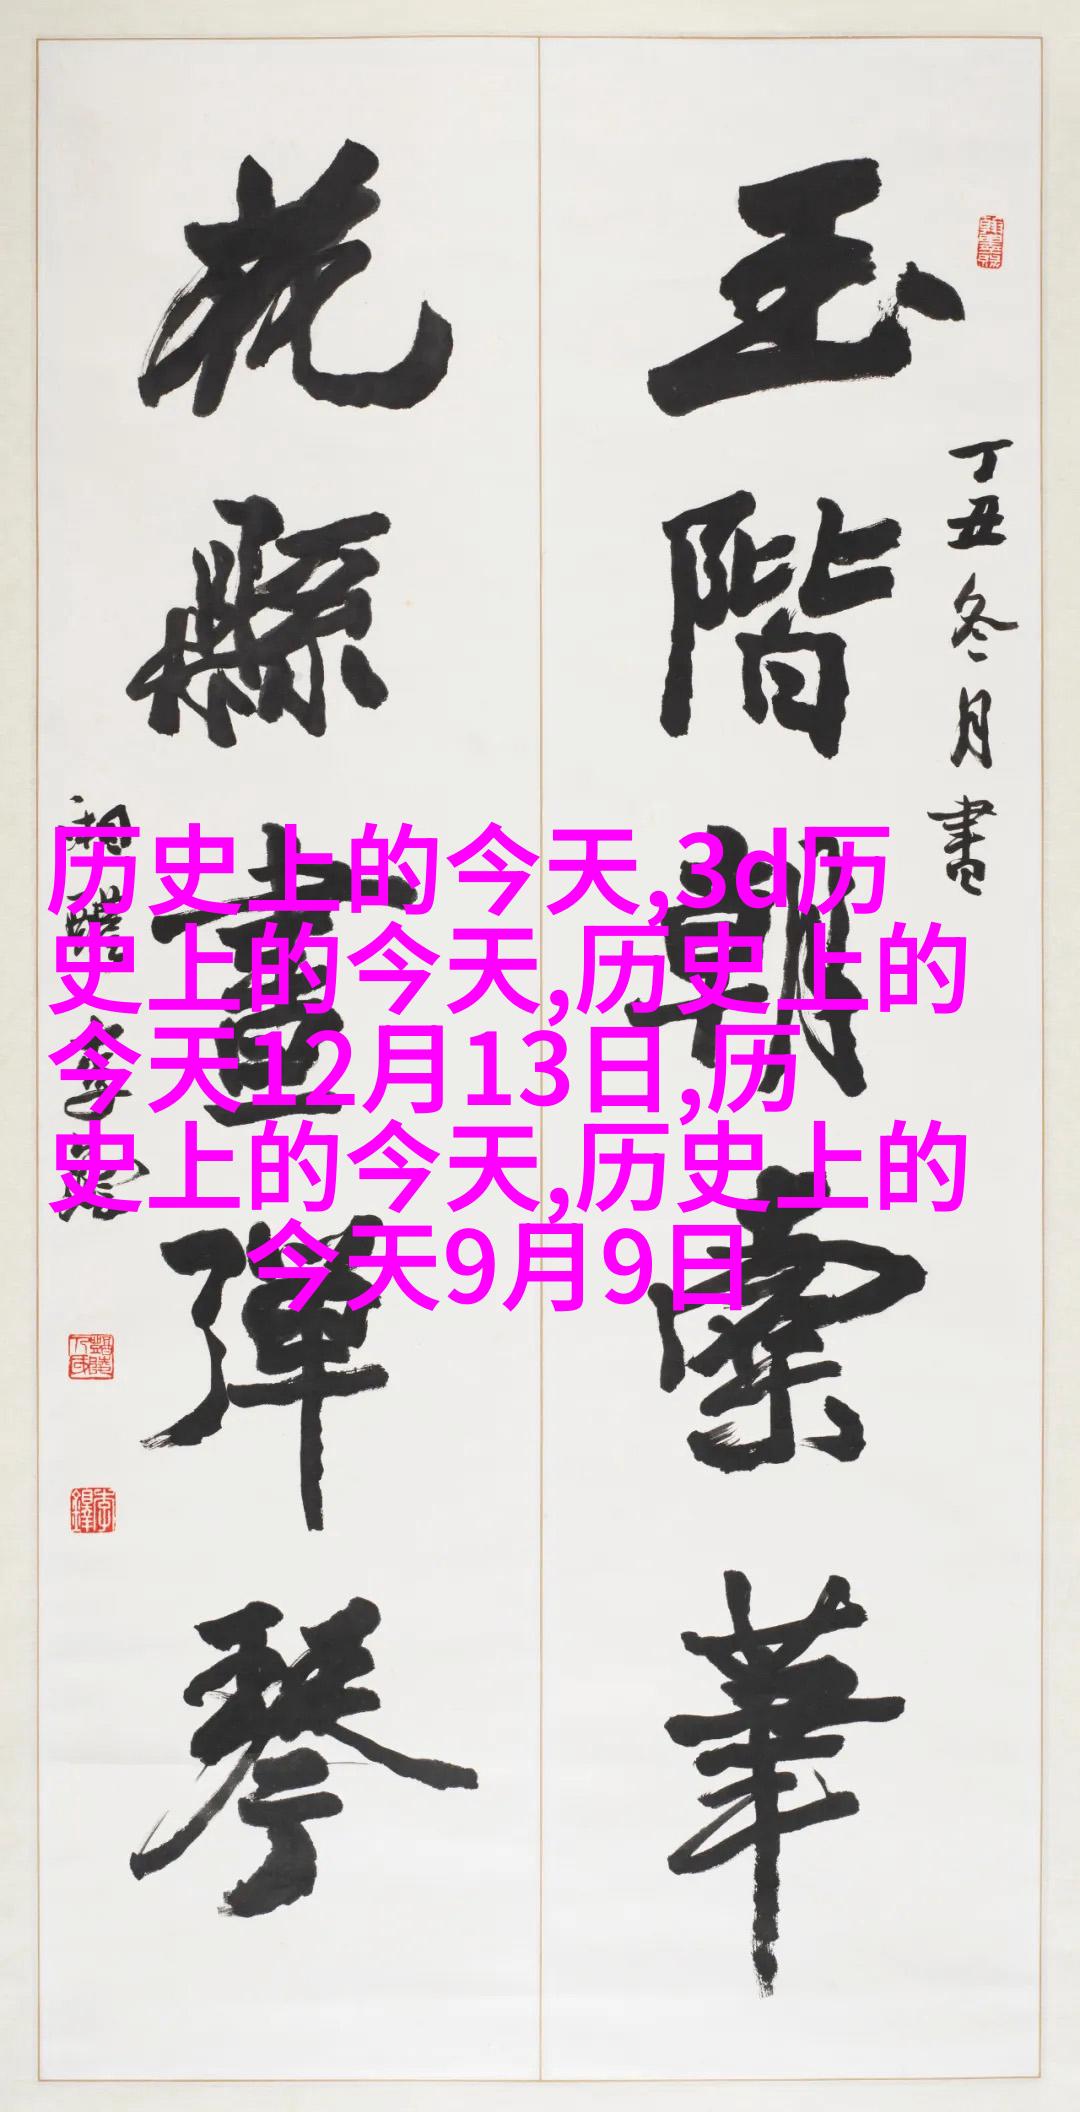 玉階朝紫華
丁丑冬月書
花縣畫彈琴
历史上的今天,3d历
史上的今天,历史上的
今天12月13日,历
史上的今天,历史上的
今天9月9日